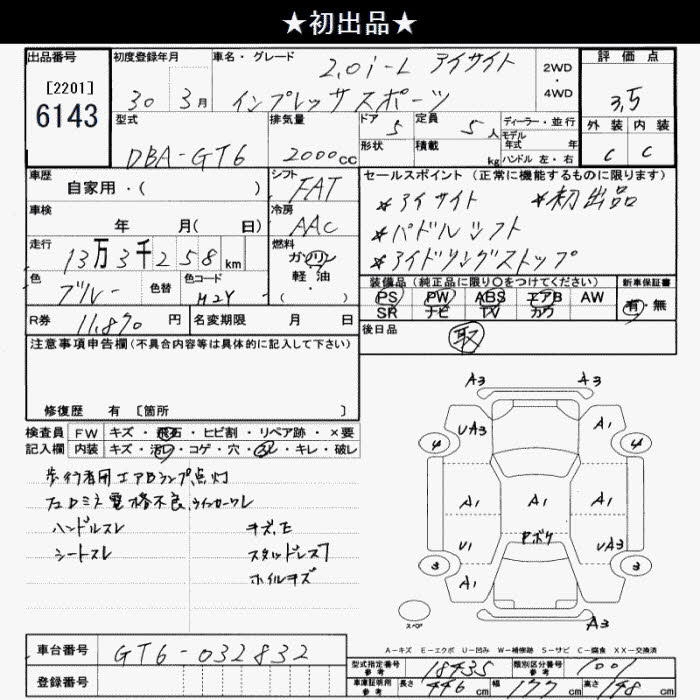 ★初出品★
出品番号
[2201]
6143
初度登録年月
30 3月
車名・グレード
2.0i-L アイサイト
インプレッサスポーツ
2WD
・
4WD
評価点
3.5
外装 内装
C C
型式
DBA-GT6
排気量
2000cc
ドア 5
定員 5人
形状
積載 kg
ディーラー・並行
モデル年式 年
ハンドル 左・右
車歴
自家用・( )
シフト
FAT
セールスポイント (正常に機能するものに限ります)
*アイサイト *初出品
*パドルシフト
*アイドリングストップ
車検
年 月( 日)
冷房
AAC
走行
13万3千258km
燃料
ガソリン
軽油
・
色
ブルー
色替
色コード
M2Y
装備品 (純正品に限り○をつけてください)
PS PW ABS エアB AW
SR ナビ TV カワ
新車保証書
有・無
R券 11,870円
名変期限 月 日
後日品
取
注意事項申告欄(不具合内容等は具体的に記入して下さい)
修復歴 有 〔箇所 〕
検査員記入欄
FW キズ・飛石・ヒビ割・リペア跡・×要
内装 キズ・汚レ・コゲ・穴・スレ・キレ・破レ
歩行者用エアBランプ点灯
左ドアミラー電格不良、ウインカーワレ
ハンドルスレ キズ、E
シートスレ スタッドレス
ホイルキズ
A3 A3
UA3 A1
4 4
A1 A1 A1
U1 UA3
3 3
A1
A3
スペア
A-キズ E-エクボ U-凹み W-補修跡 S-サビ C-腐食 XX-交換済
車台番号 GT6-032832
登録番号
型式指定番号 参考 18435
類別区分番号 参考 1001
車庫証明用 参考 長さ 446cm 幅 177cm 高さ 148cm